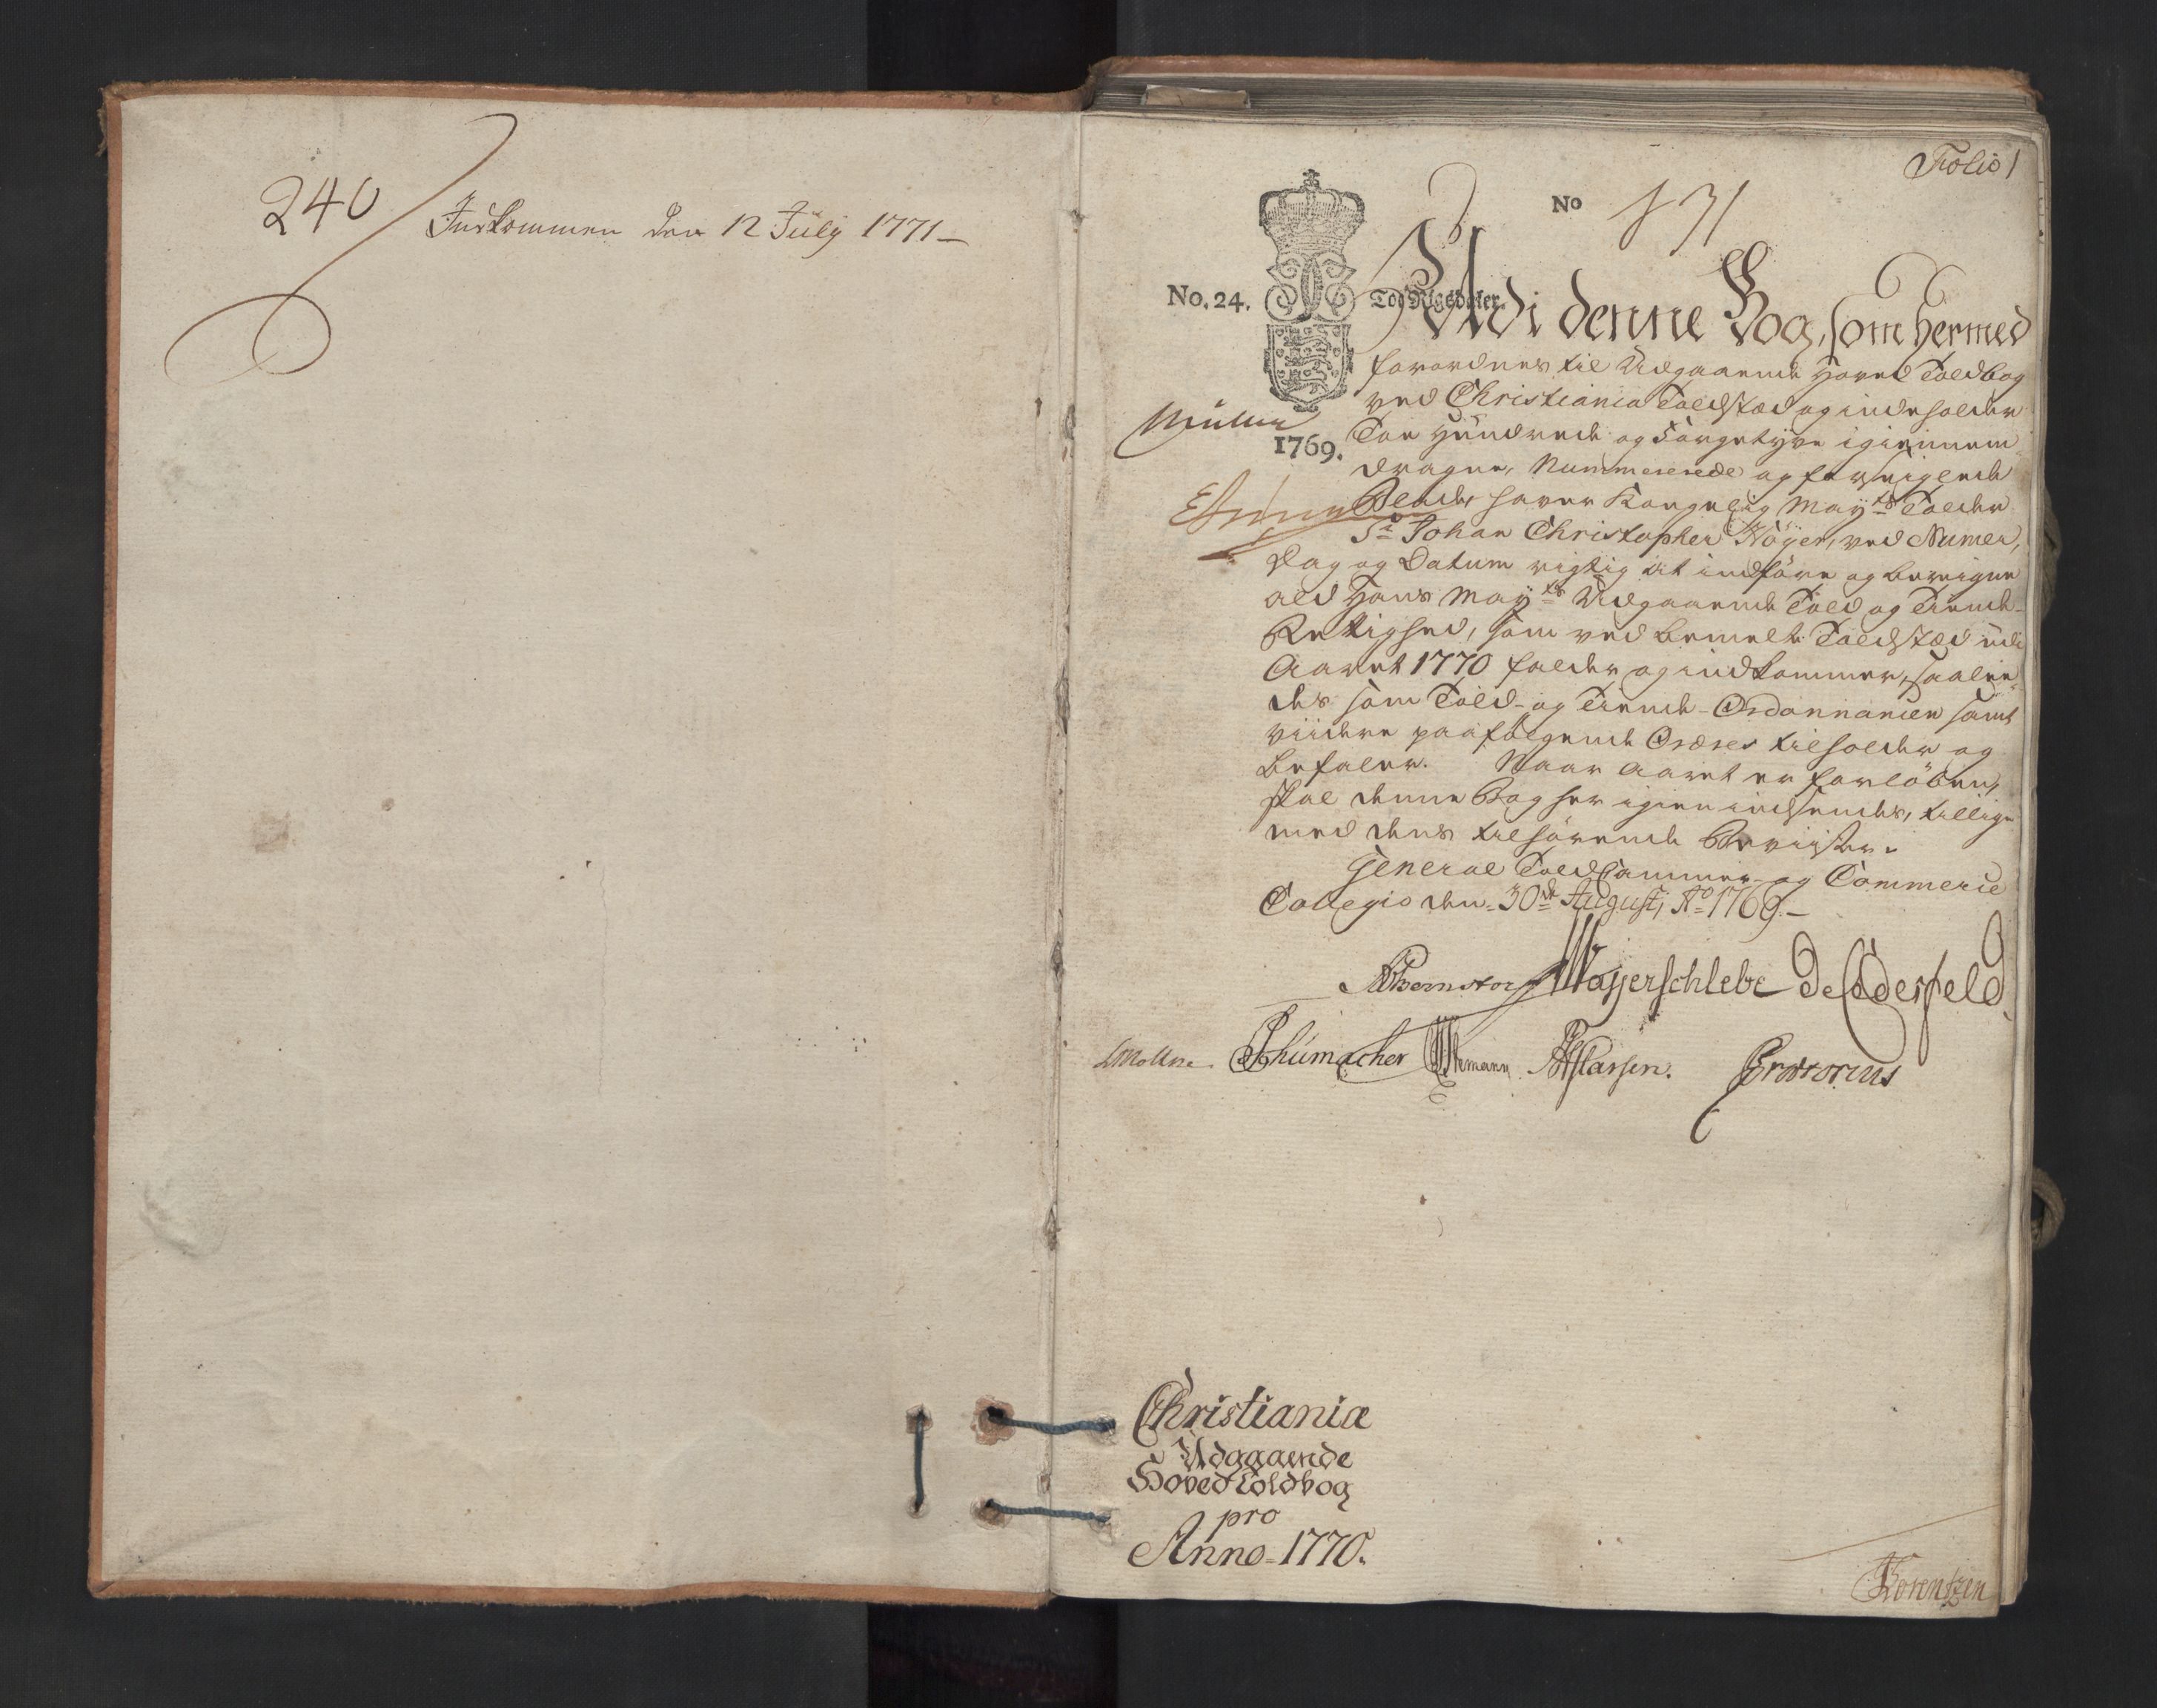 240
Indkommen den 12 July 1771
Folio 1
No
No. 24.
Toe Rigsdaler.
1769.
Udi denne Bog, som hermed
forordnes til Udgaaende Hoved Toldbog
ved Christiania Toldsted og indeholder
Toe Hundrede og Forgetyve igiennem
dragne, Nummererede og forseiglede
Blade, haver Kongelig Mayts Tolder
Sr Johan Christopher Höyer, ved Numer,
Dag og Datum rigtig at indföre og beregne
ald Hans Mayts Udgaaende Told og Tiende
Rettighed, som ved bemelte Toldsted udi
Aaret 1770 falder og indkommer, saalee
des som Told- og Tiende-Ordonnancen samt
viidere paafölgende Ordres tilholder og
befaler. Naar Aaret er forlöben,
skal denne Bog her igien indsendes, tillige
med dens tilhörende Beviister.
General Told Cammer- og Commerce
Collegio den 30de August; Ao 1769.
Wayerschlebe De Cederfeld
Schumacher
Prætorius
Christianiæ
Udgaaende
Hoved Toldbog
pro
Anno 1770.
Lorentzen